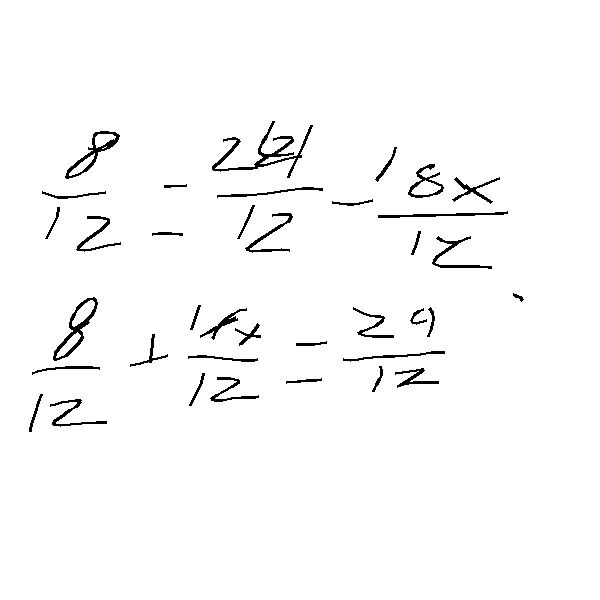 8/12 = 2/12 - 18x/12
8/12 + 1x/12 = 29/12